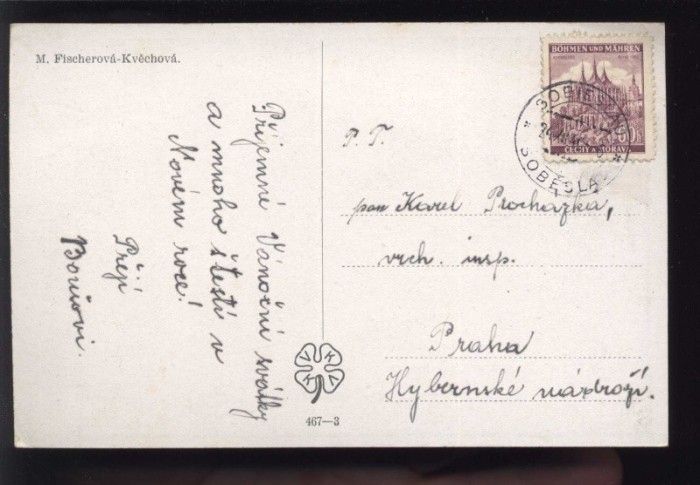 M. Fischerová-Kvěchová.
Příjemné Vánoční svátky
a mnoho štestí v
Novém roce!
Přejí
Boušovi.
BÖHMEN UND MÄHREN
ČECHY A MORAVA
SOBĚSLA
P. T.
pan Karel Procházka,
vrch. insp.
Praha
Hybernské nádraží.
V K K V
467—3